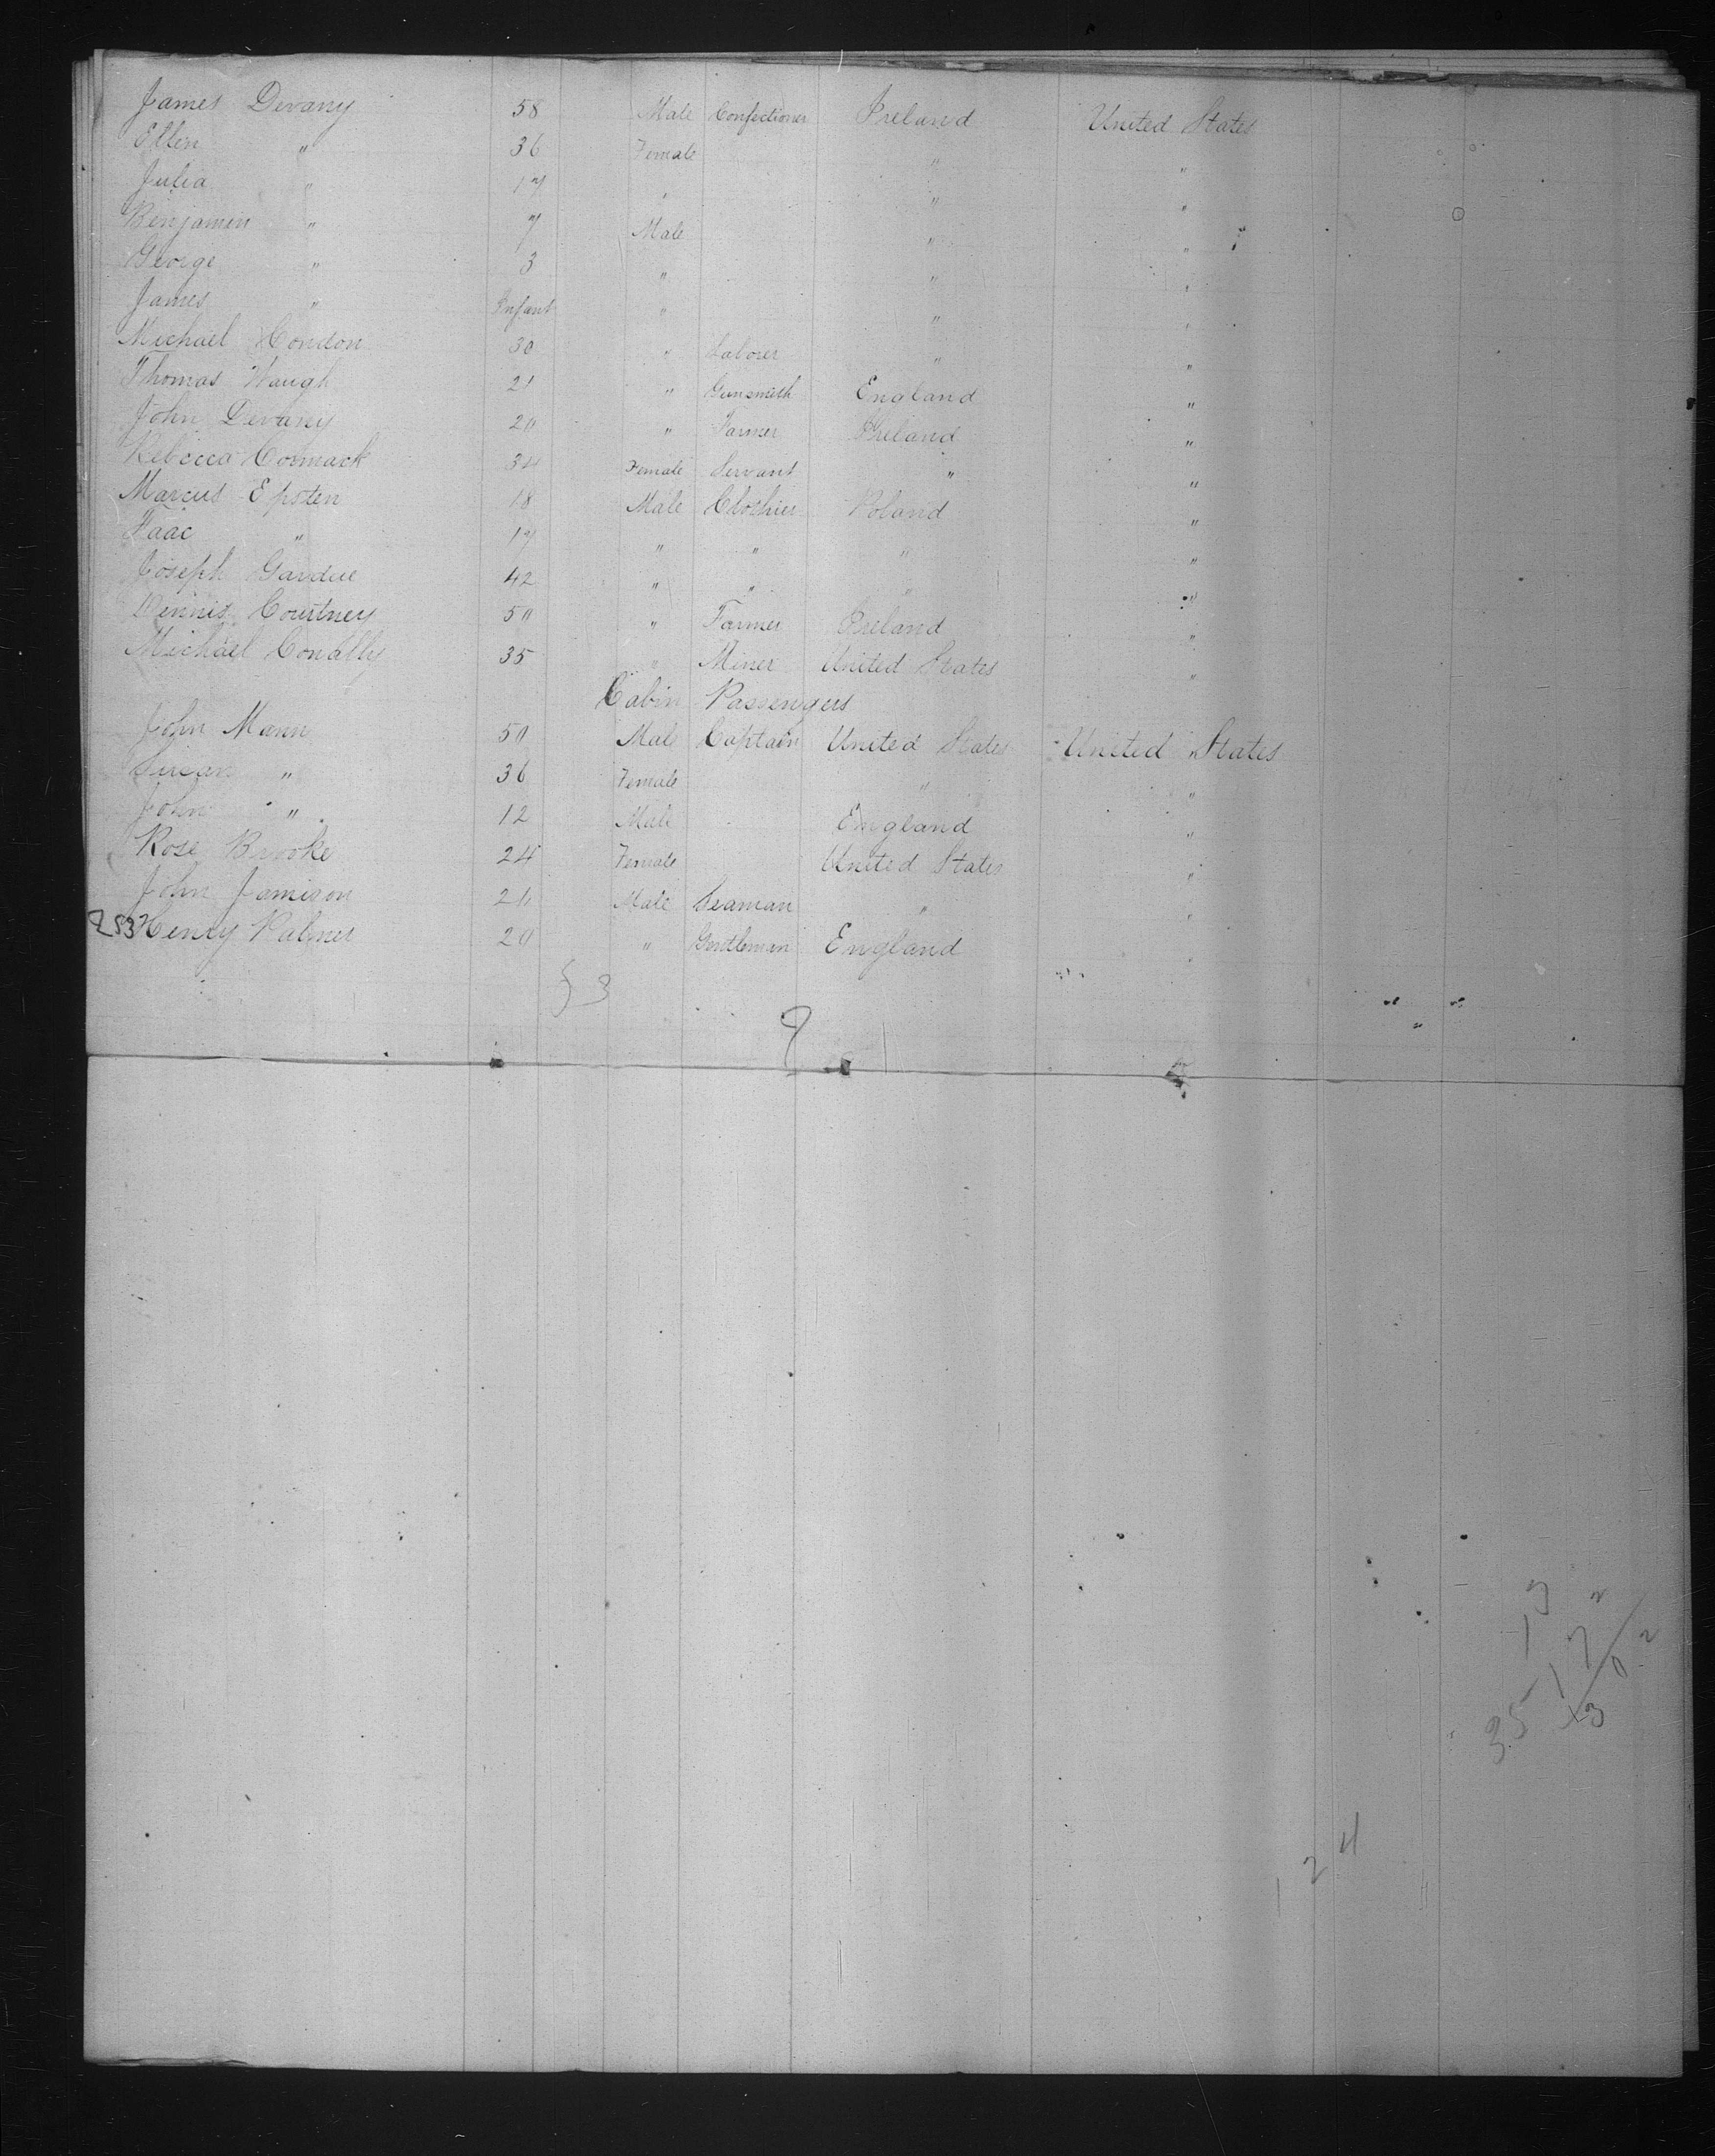 James Devany 58 Male Confectioner Ireland United States
Ellen " 36 Female " "
Julia " 17 " " "
Benjamin " 7 Male " "
George " 3 " " "
James " Infant " " "
Michael Condon 30 " Laborer " "
Thomas Waugh 21 " Gunsmith England "
John Devany 20 " Farmer Ireland "
Rebecca Cormack 34 Female Servant " "
Marcus Epsten 18 Male Clothier Poland "
Isaac " 17 " " " "
Joseph 42 " " " "
Dennis Courtney 50 " Farmer Ireland "
Michael Conally 35 " Miner United States "
Cabin Passengers
John Mann 50 Male Captain United States United States
Susan " 36 Female " "
John " 12 Male England "
Rose Brooke 24 Female United States "
John Jamison Male Seaman " "
253 Henry Palmer 20 " Gentleman England "